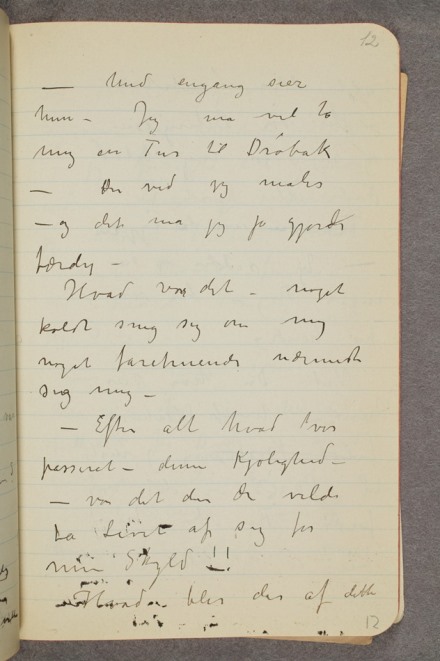 12
— Med engang sier
hun – Jeg må vel ta
mig en Tur til Drøbak
— De ved jeg males
— og det må jeg jo gjøre
færdig –
Hvad var det – noget
koldt sneg sig om mig
noget faretruende nærmede
sig mig –
— Efter alt hvad
passeret – denne Kjølighed –
— var det den De vilde
ta Livet af seg for
min Skyld !!
Hvad blir der af dette
12